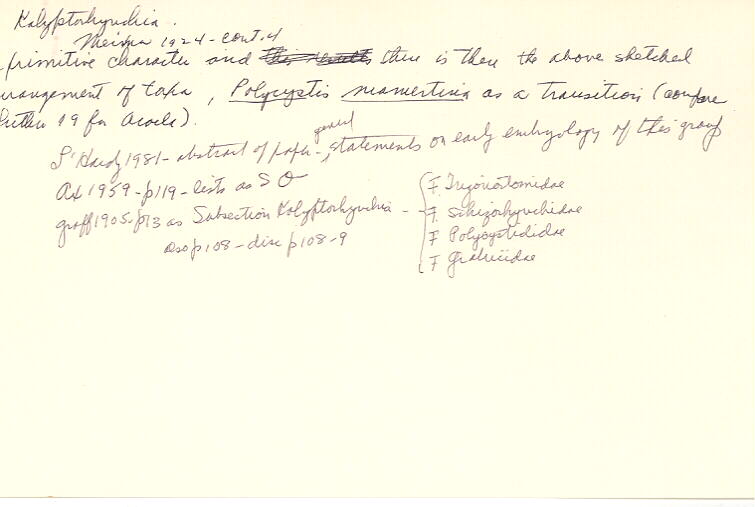 Kalyptorhynchia.
Meixner 1924 - cont.d
primitive character and this results there is then the above sketched
rrangement of taxa, Polycystis mamertina as a transition (compare
Luther 19 for Acoela).
L'Hardy 1981 - abstract of paper -, general statements on early embryology of this group
Ax 1959 - p119 - lists as SO
graff 1905 - p13 as Subsection Kalyptorhynchia - F. Trigonostomidae
F. Schizorhynchidae
F Polycystididae
F Graber
also p108 - disc p108-9